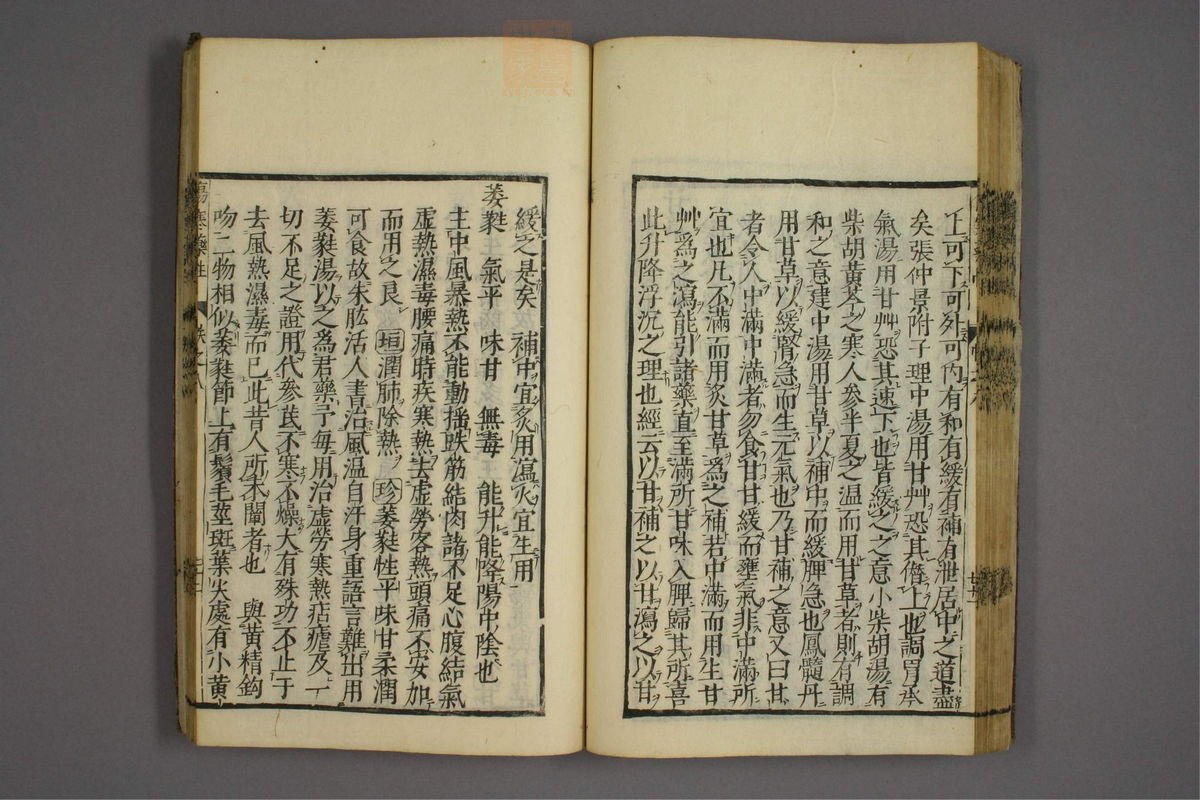 上可下可外可內有和有緩有補有泄居中之道盡
矣張仲景附子理中湯用甘艸恐其僭上也調胃承
氣湯用甘艸恐其速下也皆緩之之意小柴胡湯有
柴胡黃芩之寒人參半夏之温而用甘草者則有調
和之意建中湯用甘草以補中而緩脾急也鳳髓丹
用甘草以緩腎急而生元氣也乃甘補之意又曰甘
者令人中滿中滿者勿食甘甘緩而壅氣非中滿所
宜也凡不滿而用炙甘草爲之補若中滿而用生甘
艸爲之瀉能引諸藥直至滿所甘味入脾歸其所喜
此升降浮沉之理也經云以甘補之以甘瀉之以甘
緩之是矣 補中宜炙用瀉火宜生用
萎蕤 氣平 味甘 無毒 能升能降陽中陰也
主中風暴熱不能動揺跌筋結肉諸不足心腹結氣
虚熱濕毒腰痛時疾寒熱生虚勞客熱頭痛不安加
而用之良 垣潤肺除熱 珍萎蕤性平味甘柔潤
可食故朱肱活人書治風温自汗身重語言難出用
萎蕤湯以之為君藥予毎用治虚勞寒熱痁瘧及一
切不足之證用代參芪不寒不燥大有殊功不止于
去風熱濕毒而已此昔人所未闡者也 與黃精鉤
吻二物相似萎蕤節上有鬚毛莖斑葉尖處有小黃
傷寒藥性